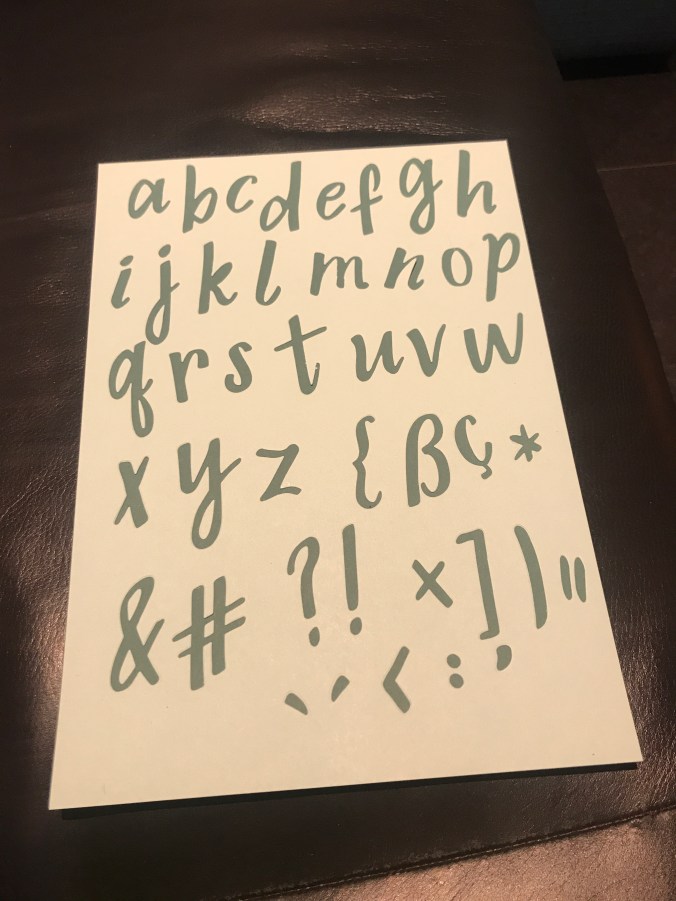 a b c d e f g h
i j k l m n o p
q r s t u v w
x y z { ß ç *
& # ? ! × ] ) "
` ´ < : ’